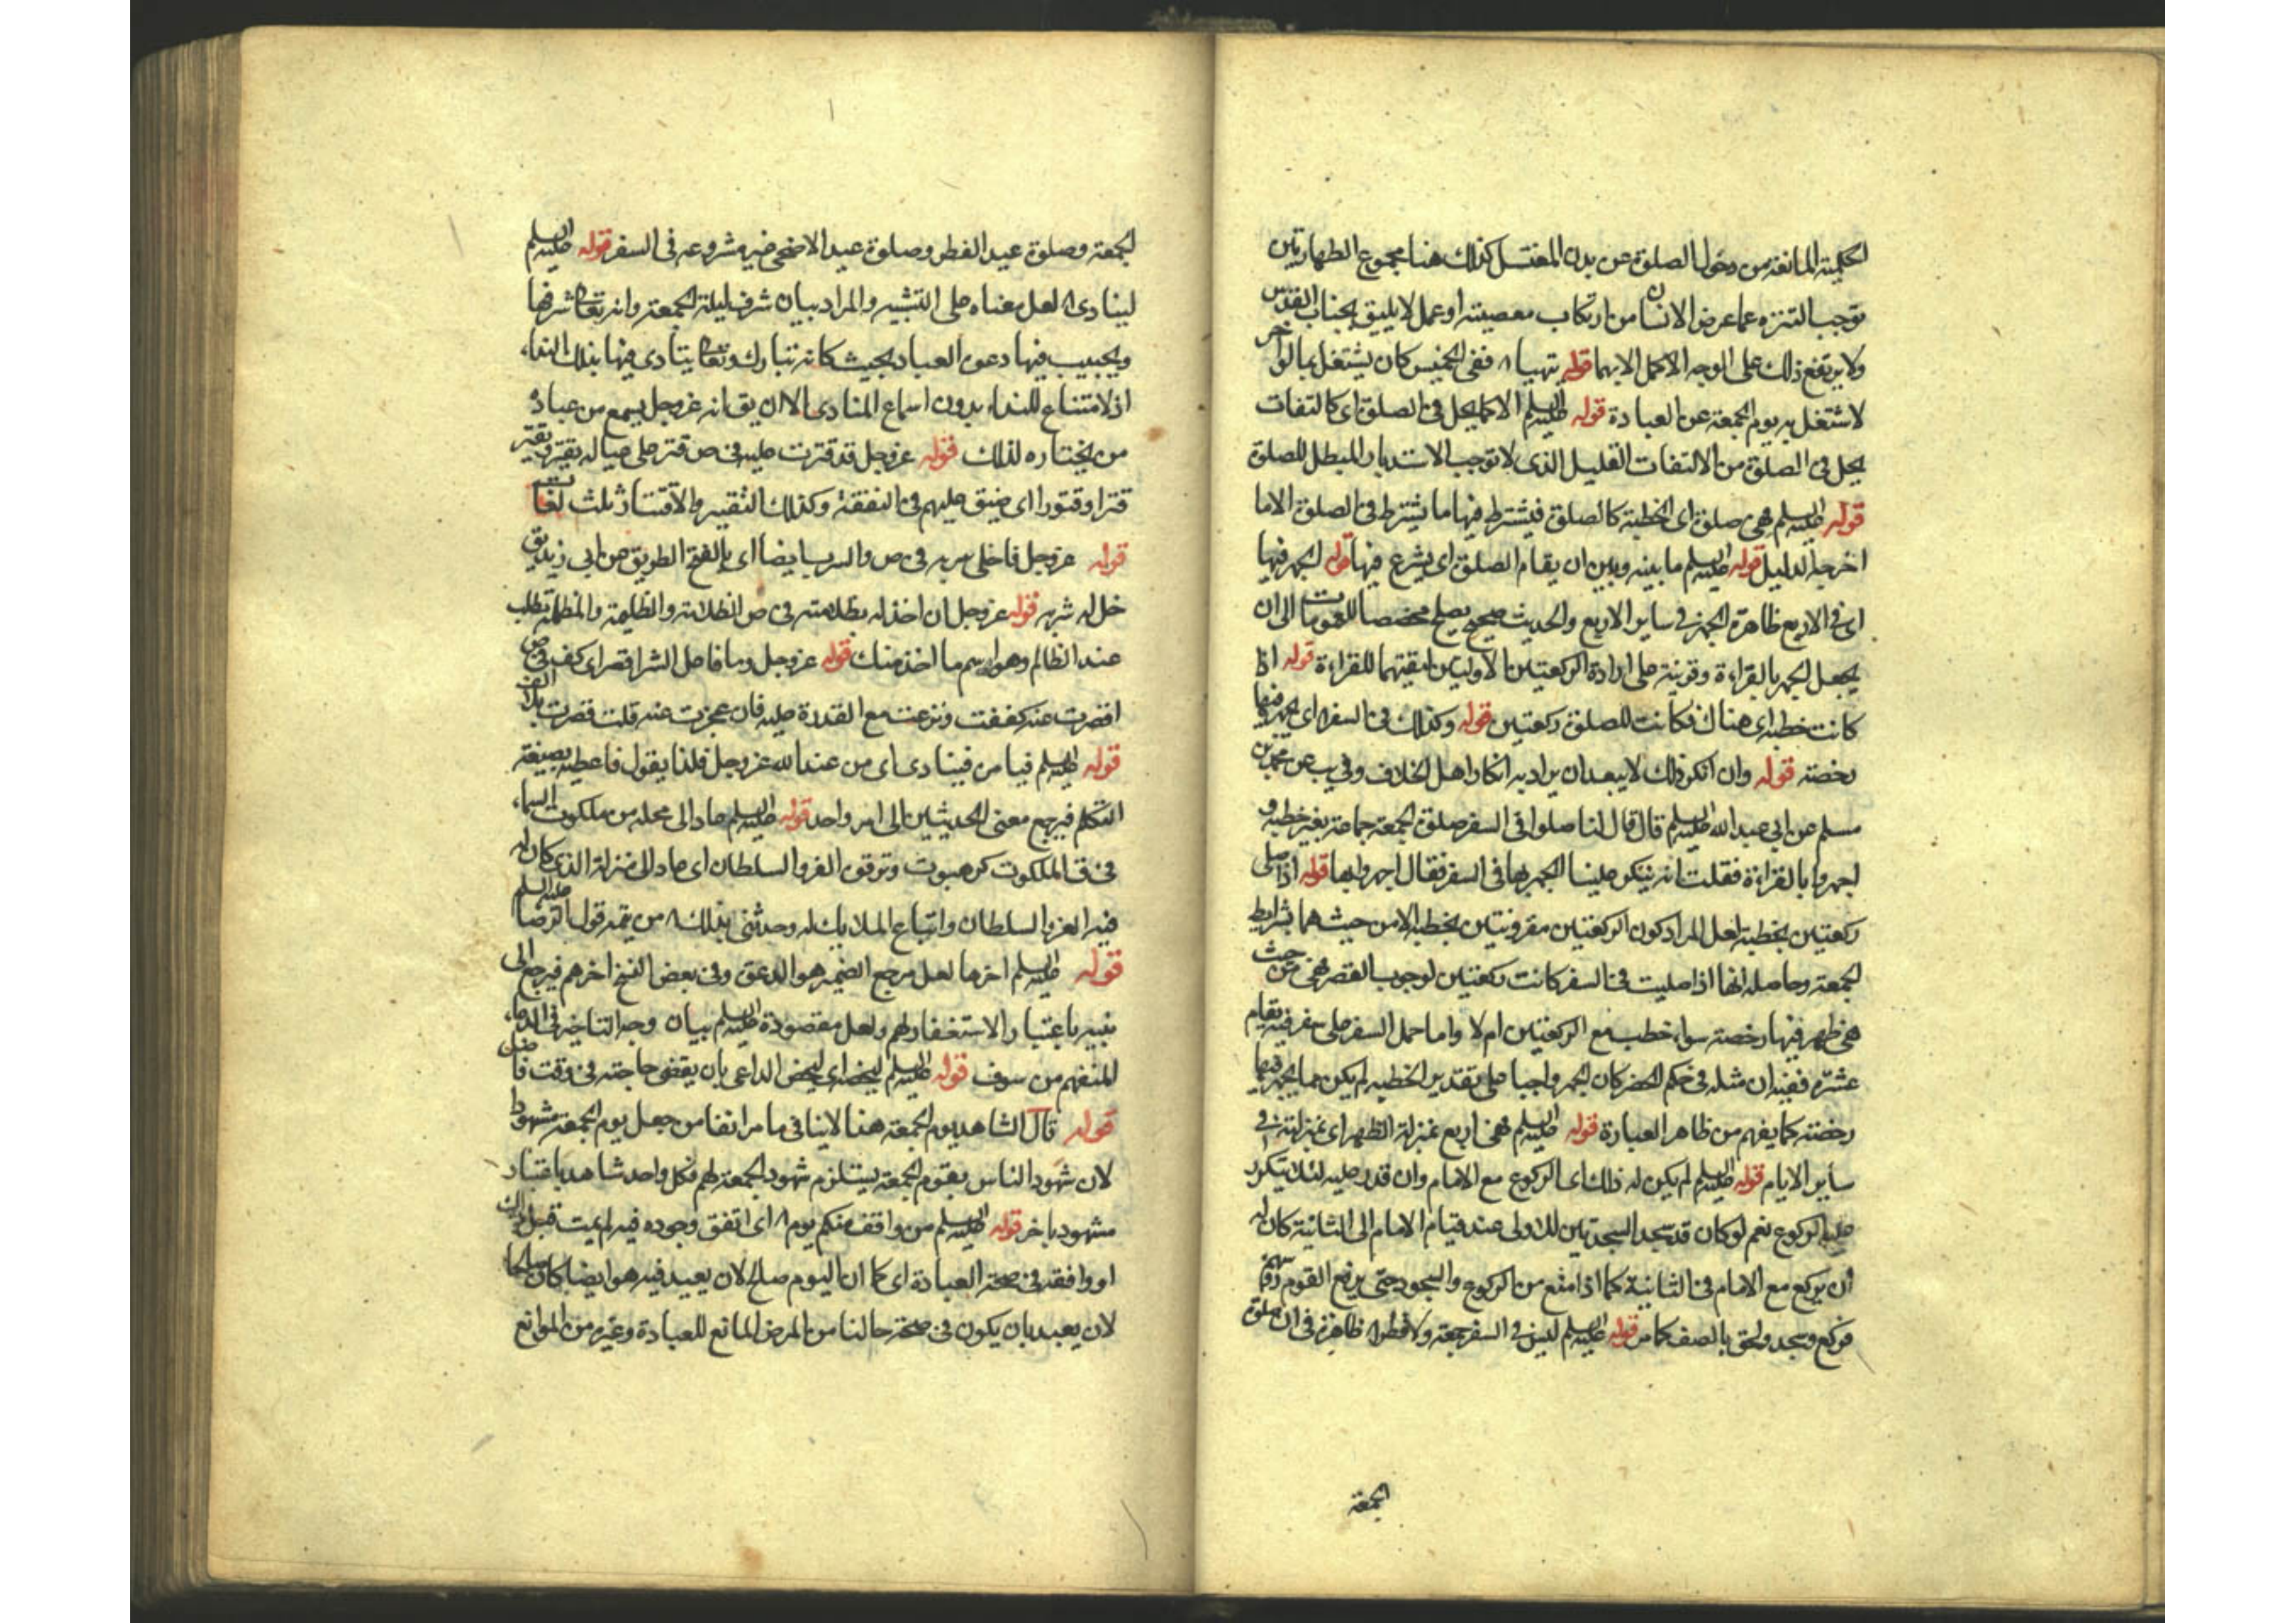 الحكمية المانعة من دخول الصلوة عن بدن المغتسل كذلك هنا مجموع الطهارتين
توجب التنزه عما عرض الانسان من ارتكاب معصيته او عمل لا يليق بجناب القدس
ولا يرتفع ذلك على الوجه الاكمل الا بهما قوله تهيا ففي الخميس كان يشتغل بما لو اخر
لاشتغل به يوم الجمعة عن العبادة قوله عليه السلم الا كما يحل في الصلوة اى كالتفات
يحل في الصلوة من الالتفات القليل الذى لا توجب الاستدبار المبطل للصلوة
قوله عليه السلم فهى صلوة اى الخطبة كالصلوة فيشترط فيها ما يشترط في الصلوة الا ما
اخرجه الدليل قوله عليه السلم ما بينه وبين ان يقام الصلوة اى يشرع فيها قوله الجهر فيها
اى في الاربع ظاهرة الجهر في ساير الاربع والحديث صحيح يصلح مخصصا للعمومات الى ان
يجعل الجهر بالقراءة وقرينة على ارادة الركعتين الاوليين لبقيتهما للقراءة قوله اذا
كانت خطبه اى هناك فكانت للصلوة ركعتين قوله وكذلك في السفر اى يجهر فيها
رخصته قوله وان انكر ذلك لا يبعد ان يراد به انكار اهل الخلاف وفي يب عن محمد بن
مسلم عن ابي عبد الله عليه السلم قال قال لنا صلوا في السفر صلوة الجمعة جماعة بغير خطبه و
اجهروا بالقراءة فقلت انه ينكر علينا الجهر بها في السفر فقال اجهروا بها قوله اذا صلى
ركعتين بخطبة لعل المراد كون الركعتين مقرونتين بخطبه لا من حيث هما بشرايط
الجمعة وحاصله انها اذا صليت في السفر كانت ركعتين لوجوب القصر فهى من حيث
هى ظهر فيها رخصته سواء خطب مع الركعتين ام لا واما حمل السفر على سفر فيه يقام
عشرة ففيه ان مثله في حكم الحضر كان الجهر واجبا على تقدير الخطبه لم يكن مما يجهر فيها
رخصته كما يفهم من ظاهر العبارة قوله عليه السلم فهى اربع بمنزلة الظهر اى بمنزلته في
سائر الايام قوله عليه السلم لم يكن له ذلك اى الركوع مع الامام وان قدر عليه لئلا يتكرر
عليه الركوع نعم لو كان قد سجد السجدتين للاولى عند قيام الامام الى الثانية كان له
أن يركع مع الامام في الثانية كما اذا منع من الركوع والسجود حتى يرفع القوم رؤسهم
فركع وسجد ولحق بالصف كما مر قوله عليه السلم ليس في السفر جمعة ولا فطر ظاهرة في ان صلوة
الجمعة
الجمعة وصلوة عيد الفطر وصلوة عيد الاضحى غير مشروعه في السفر قوله عليه السلم
لينادى لعل معناه على التشبيه والمراد بيان شرف ليلة الجمعة وانه تعالى شرفها
ويجيب فيها دعوة العباد بحيث كانه تبارك وتعالى ينادى فيها بذلك النداء
اذ لا متناع للنداء بدون اسماع المنادى الا ان يق انه عز وجل يسمع من عباده
من يختاره لذلك قوله عز وجل قد قترت عليه في ص قتر على عياله يقتر ويقتر
قترا وقتورا اى ضيق عليهم في النفقة وكذلك التقتير والاقتار ثلث لغات
قوله عز وجل فاخلى سربه في ص والسرب ايضا اى بالفتح الطريق عن ابي زيد يق
خل له سربه قوله عز وجل ان اخذ له بظلامته في ص الظلامة والظليمة والمظلمة تطلب
عند الظالم وهو اسم ما اخذ منك قوله عز وجل وما فاعل الشر اقصر اى كف وفي ص
اقصرت عنه كففت ونزعت مع القدرة عليه فان عجزت عنه قلت قصرت بلا الف
قوله عليه السلم فيامر فينادى اى من عند الله عز وجل فلذا يقول فاعطيه بصيغة
المتكلم فيرجع معنى الحديثين الى امر واحد قوله عليه السلم عاد الى محله من ملكوت السماء
في ق الملكوت كرهبوت وترقوة العز والسلطان اى عاد الى منزله الذى كان له
فيه العز والسلطان واتباع الملايك له وحدثنى بذلك من تتمة قول الرضا عليه السلم
قوله عليه السلم اخرها لعل مرجع الضمير هو الدعوة وفي بعض النسخ اخرهم فيرجع الى
بنيه باعتبار الاستغفار لهم ولعل مقصوده عليه السلم بيان وجه التاخير في الدعاء
المنفهم من سوف قوله عليه السلم ليخصه اى ليخص الداعى بان يقضى حاجته في وقت فاضل
قوله قال الشاهد يوم الجمعة هذا لا ينافي ما مر انفا من جعل يوم الجمعة مشهودا
لان شهود الناس بيوم الجمعة يستلزم شهود الجمعة لهم فكل واحد شاهد باعتبار
مشهود باخر قوله عليه السلم من وافق منكم يوم اى اتفق وجوده فيه لم يمت قبل ذلك
او وافقه في صحة العبادة اى كما ان اليوم صالح لان يعبد فيه هو ايضا كان صالحا
لان يعبد بان يكون في صحة حالنا من المرض المانع للعبادة وغيره من الموانع